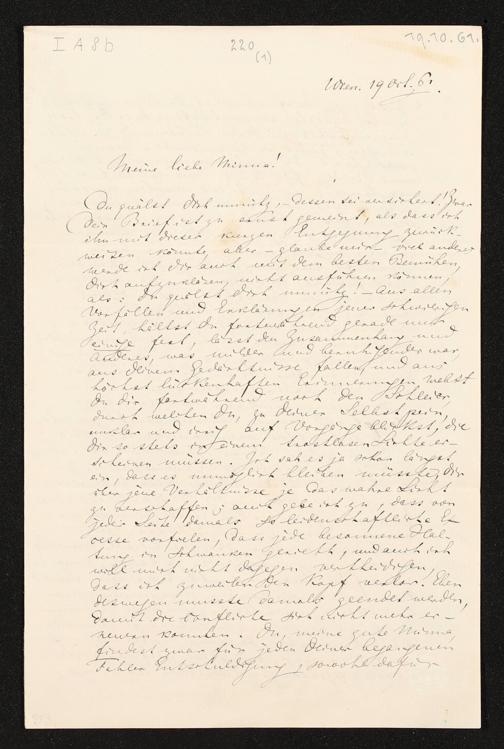 I A 8 b
220
(1)
19.10.61.
Wien. 19 Oct. 61.
Meine liebe Minna!
Du quälst Dich unnütz, – dessen sei versichert! Zwar
Dein Brief ist zu ernst gemeint, als dass ich
ihn mit dieser kurzen Entgegnung zurück-
weisen könnte, aber – glaube mir – viel anderes
werde ich Dir auch mit dem besten Bemühen,
Dich aufzuklären, nicht ausführen können,
als: Du quälst Dich unnütz! – Aus allen
Vorfällen und Erklärungen jener schwierigen
Zeit, hältst Du fortwährend gerade nur
einige fest, lässt den Zusammenhang und
Anderes, was milder und beruhigender war,
aus Deinem Gedächtnisse fallen, und aus
höchst lückenhaften Erinnerungen webst
Du Dir fortwährend noch den Schleier,
durch welchen Du, zu Deiner Selbstpein,
unklar und irrig auf Vorgänge blickst, die
Dir so stets in einem trostlosen Lichte er-
scheinen müssen. Ich sah es ja schon längst
ein, dass es unmöglich bleiben müsste, Dir
über jene Verhältnisse je das wahre Licht
zu verschaffen; auch gebe ich zu, dass von
jeder Seite damals so leidenschaftliche Ex-
cesse vorfielen, dass jede besonnene Hal-
tung in Schwanken gerieth, und auch ich
will mich nicht dagegen vertheidigen,
dass ich zuweilen den Kopf verlor. Eben
deswegen musste damals geendet werden,
damit die Conflicte sich nicht mehr er-
neuern konnten. Du, meine gute Minna,
findest zwar für jeden Deiner begangenen
Fehler Entschuldigung, sowohl dafür